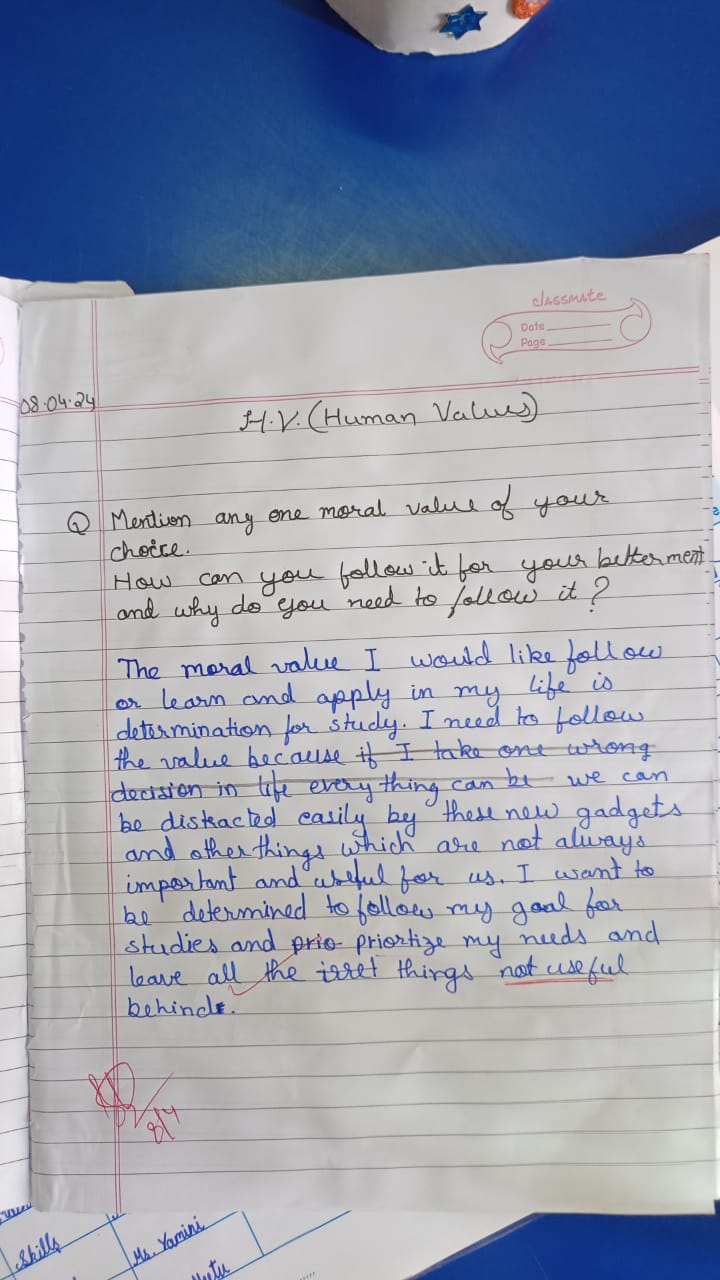 classmate
Date
Page
08.04.24
H.V. (Human Values)
Q Mention any one moral value of your
choice.
How can you follow it for your betterment
and why do you need to follow it ?
The moral value I would like follow
or learn and apply in my life is
determination for study. I need to follow
the value because if I take one wrong
decision in life every thing can be we can
be distracted easily by these new gadgets
and other things which are not always
important and useful for us. I want to
be determined to follow my goal for
studies and prio priortize my needs and
leave all the irret things not useful
behind.
8/4
Skills
Ms. Yamini